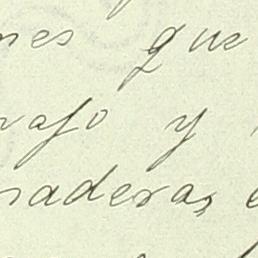 nes que
rafo y
naderas, e